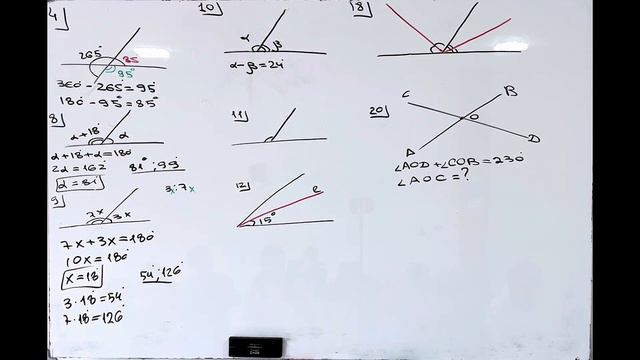 4)
265°
85
95°
360 - 265° = 95°
180 - 95° = 85°
8)
α+18°
α
α+18+α=180
2α = 162
81°; 99°
α = 81
3:7
x
x
9)
7x
3x
7x+3x=180
10x = 180
x = 18
54; 126
3·18=54
7·18=126
10)
α
β
α-β=24
11)
12)
15°
C
18)
20)
C
B
O
A
D
∠AOD+∠COB=230
∠AOC=?